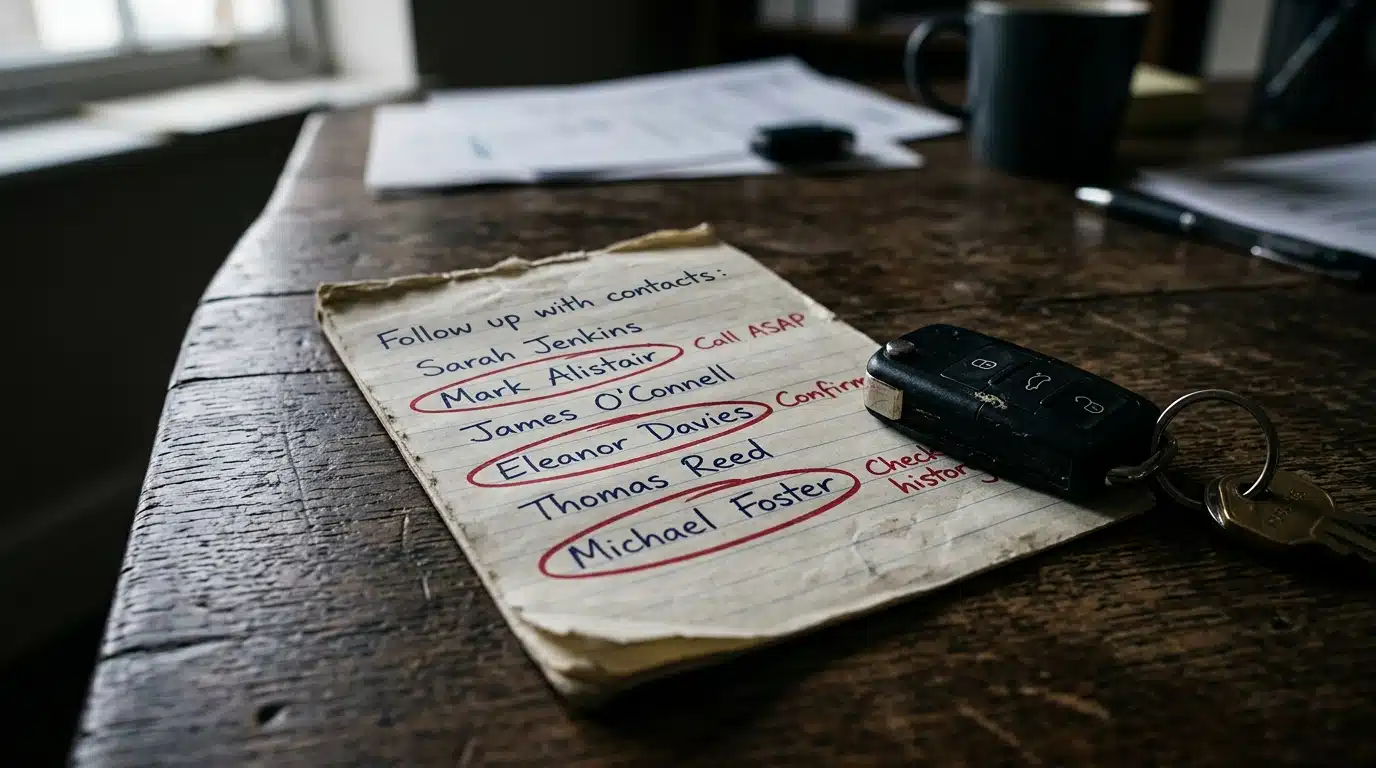 Follow up with contacts:
Sarah Jenkins
Mark Alistair Call ASAP
James O'Connell
Eleanor Davies Confirm
Thomas Reed
Michael Foster Check
history